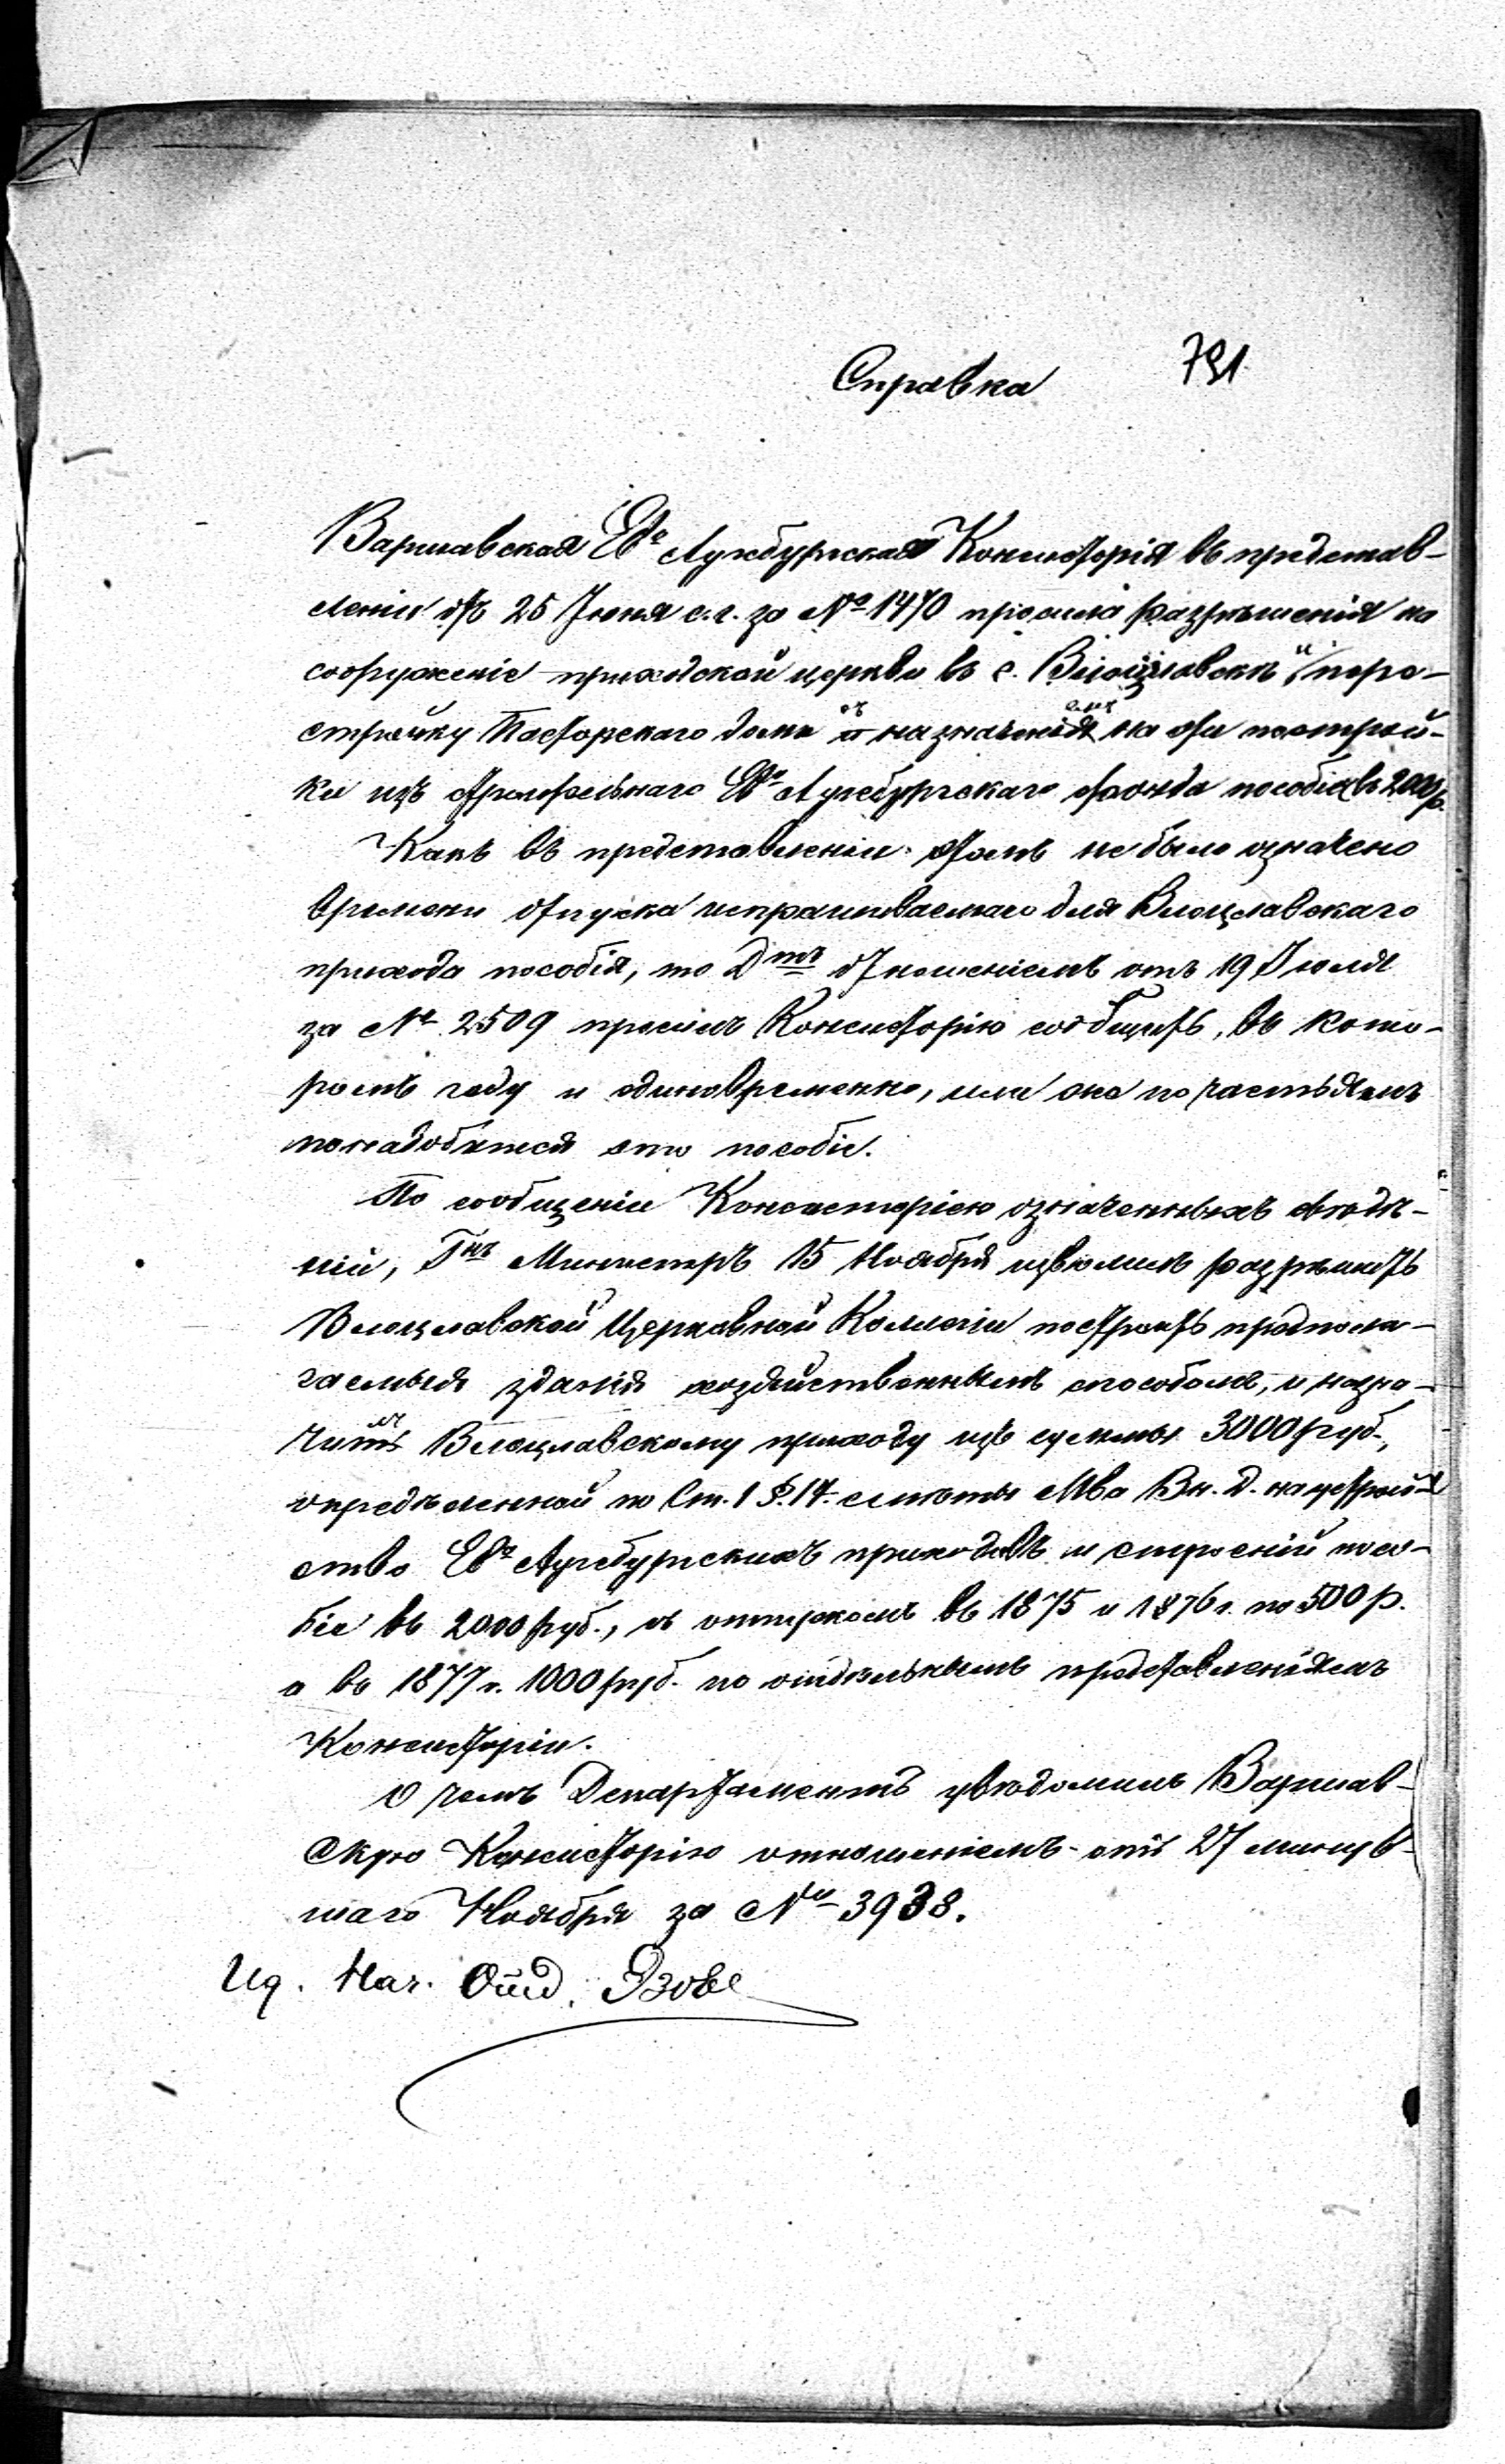 Справка 791
Варшавская Евг Аугсбургская Консисторія въ представ-
леніи отъ 25 Іюня с. г. за № 1470 просила разрѣшенія на
сооруженіе приходской церкви въ с. Влоцлавскѣ и пере-
стройку Пасторскаго дома съ назначеніемъ на эти построй-
ки изъ Евг Аугсбургскаго фонда пособія въ 2000 р.
Какъ въ представленіи этомъ не было означено
времени отпуска испрашиваемаго для Влоцлавскаго
прихода пособія, то Дтъ отношеніемъ отъ 19 Іюля
за № 2509 просилъ Консисторію сообщить, въ кото-
ромъ году и единовременно, или же по частямъ
понадобится это пособіе.
По сообщеніи Консисторіею означенныхъ свѣдѣ-
ній, Гнъ Министръ 15 Ноября изволилъ разрѣшить
Влоцлавской Церковной Коллегіи построить предпола-
гаемыя зданія хозяйственнымъ способомъ, и назна-
чилъ Влоцлавскому приходу изъ суммы 3000 руб.,
опредѣленной по Ст. 1 §. 17. смѣты Мва Вн. Д. на устрой-
ство Евг Аугсбургскихъ приходовъ и строеній посо-
біе въ 2000 руб., съ отпускомъ въ 1875 и 1876 г. по 500 р.
а въ 1877 г. 1000 руб. по отдѣльнымъ представленіямъ
Консисторіи.
О чемъ Департаментъ увѣдомилъ Варшав-
скую Консисторію отношеніемъ отъ 27 минув-
шаго Ноября за № 3938.
Нач. Отд.